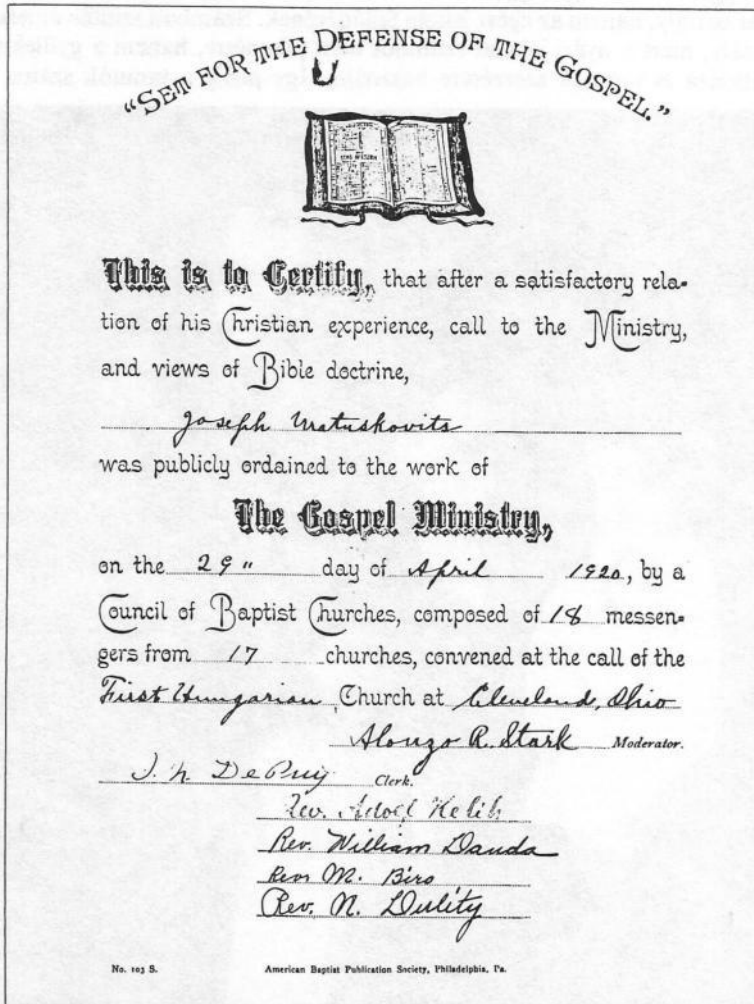 "SET FOR THE DEFENSE OF THE GOSPEL."
This is to Certify, that after a satisfactory rela-
tion of his Christian experience, call to the Ministry,
and views of Bible doctrine,
Joseph Matuskovits
was publicly ordained to the work of
The Gospel Ministry,
on the 29" day of April 1920, by a
Council of Baptist Churches, composed of 18 messen-
gers from 17 churches, convened at the call of the
First Hungarian Church at Cleveland, Ohio
Alonzo R. Stark Moderator.
J. N. DePuy Clerk.
Rev. Adolf
Rev. William Dauda
Rev. M. Biro
Rev. N. Dulity
No. 103 S. American Baptist Publication Society, Philadelphia, Pa.